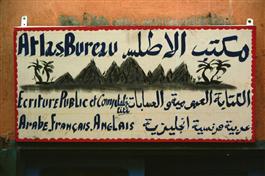 Atlas Bureau مكتب الاطلس
Ecriture Public et Comptabilité الكتابة العمومية والحسابات
Arabe, Français, Anglais عربية فرنسية انجليزية